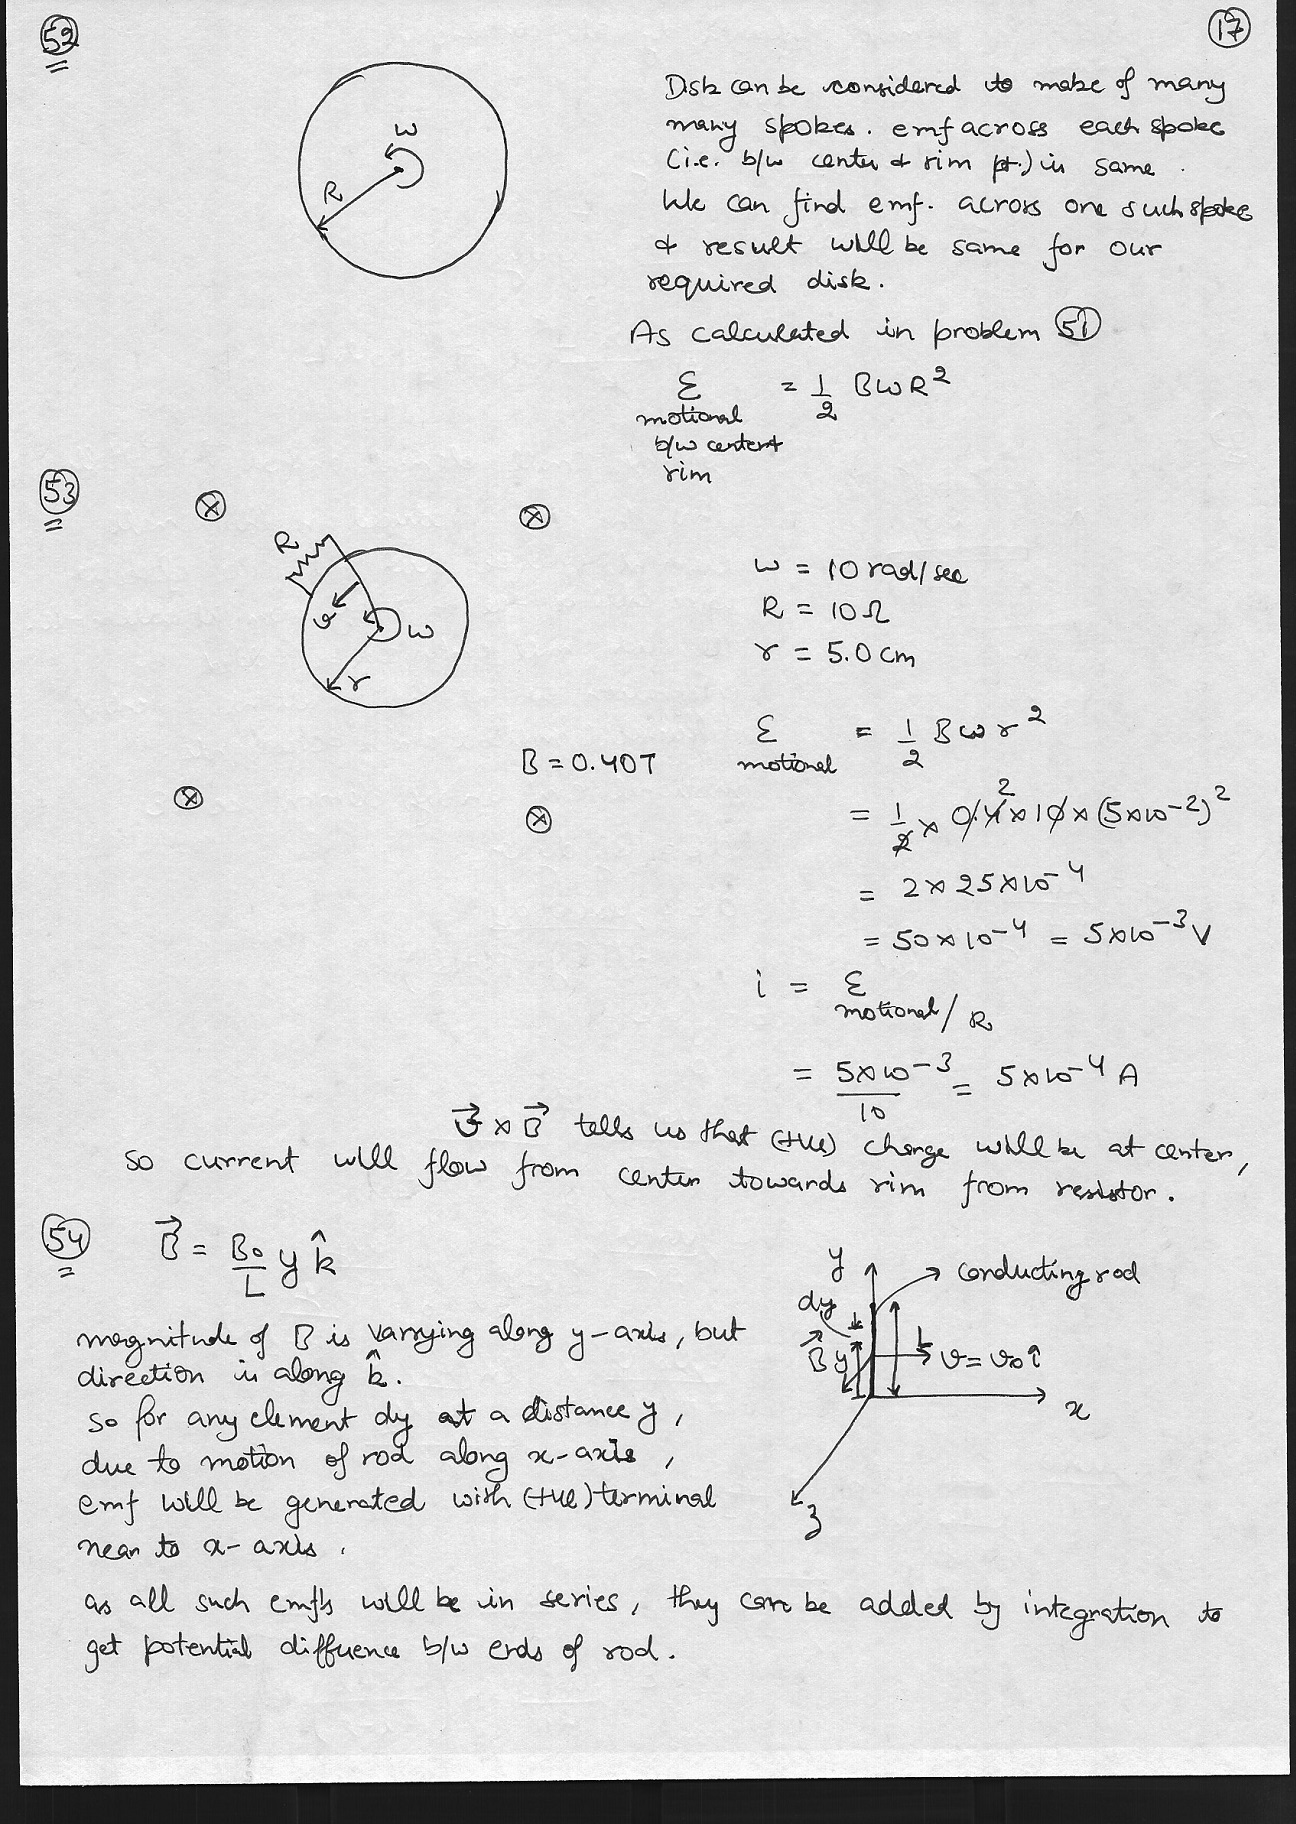 52
17
ω
R
Disk can be considered to make of many
many spokes. emf across each spoke
(i.e. b/w center & rim pt.) is same.
We can find emf. across one such spoke
& result will be same for our
required disk.
As calculated in problem 51
Ɛ = 1/2 BωR²
motional
b/w center &
rim
53
⊗ ⊗
R
v
ω
r
ω = 10 rad/sec
R = 10 Ω
r = 5.0 cm
B = 0.40T
Ɛ motional = 1/2 Bωr²
⊗ ⊗
= 1/2 × 0.4 × 10 × (5×10⁻²)²
2
= 2 × 25×10⁻⁴
= 50 × 10⁻⁴ = 5×10⁻³ V
i = Ɛ motional / R
= 5×10⁻³/10 = 5×10⁻⁴ A
v⃗ × B⃗ tells us that (+ve) charge will be at center,
so current will flow from center towards rim from resistor.
54
B⃗ = B₀/L y k̂
y
conducting rod
dy
B⃗
y
L
v = v₀î
x
z
magnitude of B is varrying along y-axis, but
direction is along k̂.
so for any element dy at a distance y,
due to motion of rod along x-axis,
emf will be generated with (+ve) terminal
near to x-axis.
as all such emfs will be in series, they can be added by integration to
get potential diffuence b/w ends of rod.